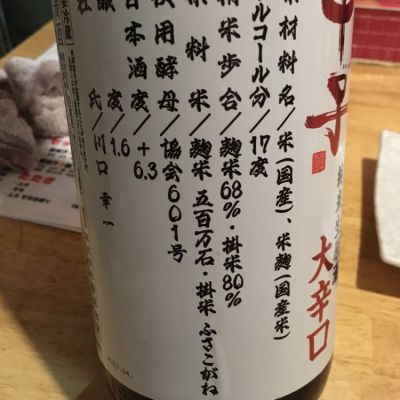 甲子
純米
大辛口
原材料名/米(国産)、米麹(国産米)
アルコール分/17度
精米歩合/麹米68%・掛米80%
原料米/麹米 五百万石・掛米 ふさこがね
使用酵母/協会601号
日本酒度/+6.3
酸度/1.6
杜氏/川口 幸一